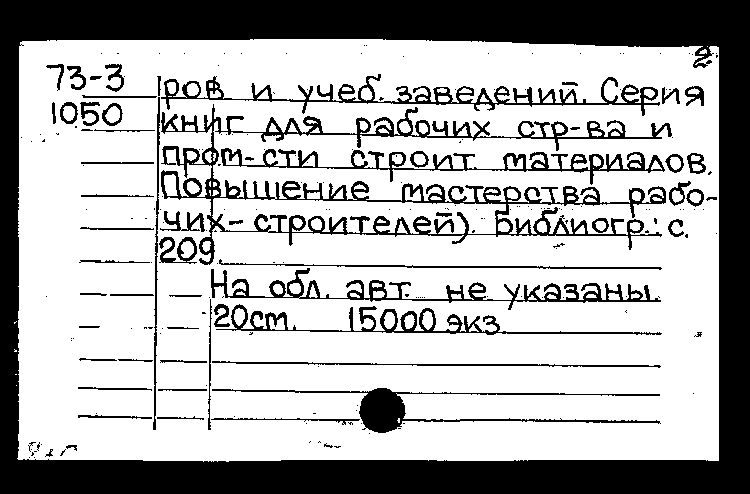 2
73-3
1050
ров и учеб. заведений. Серия
книг для рабочих стр-ва и
пром-сти строит. материалов.
Повышение мастерства рабо-
чих-строителей). Библиогр.: с.
209.
На обл. авт. не указаны.
20см. 15000 экз.